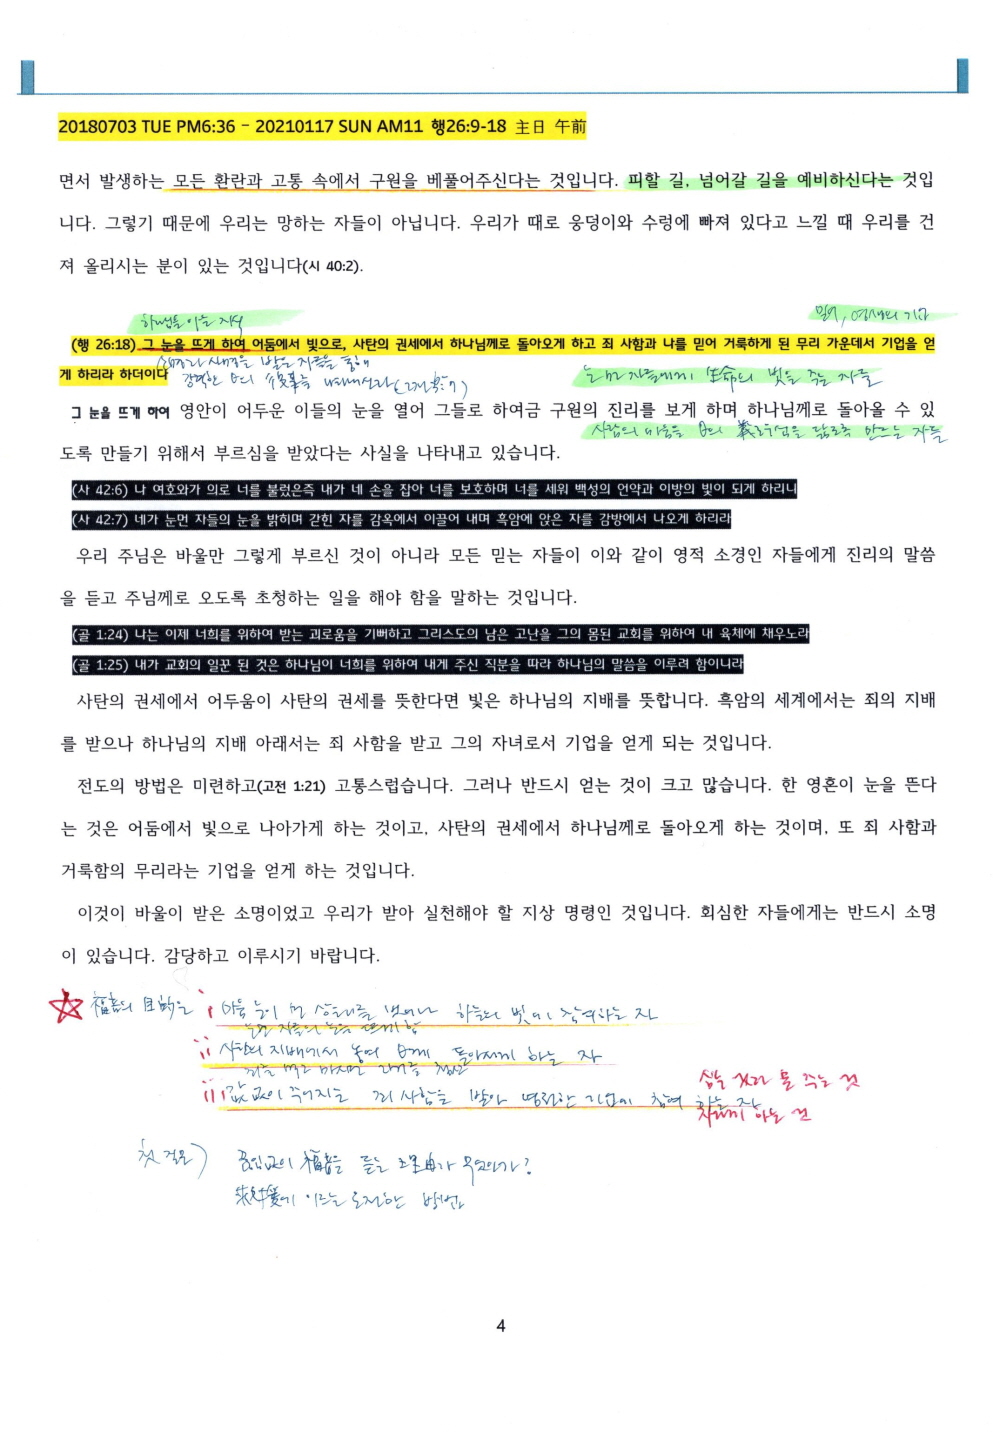 20180703 TUE PM6:36 – 20210117 SUN AM11 행26:9-18 主日 午前
면서 발생하는 모든 환란과 고통 속에서 구원을 베풀어주신다는 것입니다. 피할 길, 넘어갈 길을 예비하신다는 것입
니다. 그렇기 때문에 우리는 망하는 자들이 아닙니다. 우리가 때로 웅덩이와 수렁에 빠져 있다고 느낄 때 우리를 건
져 올리시는 분이 있는 것입니다(시 40:2).
하나님을 아는 지식
믿어, 영생의 기업
(행 26:18) 그 눈을 뜨게 하여 어둠에서 빛으로, 사탄의 권세에서 하나님께로 돌아오게 하고 죄 사함과 나를 믿어 거룩하게 된 무리 가운데서 기업을 얻
게 하리라 하더이다
눈먼 자들에게 生命의 빛을 주는 자들
그 눈을 뜨게 하여 영안이 어두운 이들의 눈을 열어 그들로 하여금 구원의 진리를 보게 하며 하나님께로 돌아올 수 있
사람의 마음을 닮도록 만드는 자들
도록 만들기 위해서 부르심을 받았다는 사실을 나타내고 있습니다.
(사 42:6) 나 여호와가 의로 너를 불렀은즉 내가 네 손을 잡아 너를 보호하며 너를 세워 백성의 언약과 이방의 빛이 되게 하리니
(사 42:7) 네가 눈먼 자들의 눈을 밝히며 갇힌 자를 감옥에서 이끌어 내며 흑암에 앉은 자를 감방에서 나오게 하리라
우리 주님은 바울만 그렇게 부르신 것이 아니라 모든 믿는 자들이 이와 같이 영적 소경인 자들에게 진리의 말씀
을 듣고 주님께로 오도록 초청하는 일을 해야 함을 말하는 것입니다.
(골 1:24) 나는 이제 너희를 위하여 받는 괴로움을 기뻐하고 그리스도의 남은 고난을 그의 몸된 교회를 위하여 내 육체에 채우노라
(골 1:25) 내가 교회의 일꾼 된 것은 하나님이 너희를 위하여 내게 주신 직분을 따라 하나님의 말씀을 이루려 함이니라
사탄의 권세에서 어두움이 사탄의 권세를 뜻한다면 빛은 하나님의 지배를 뜻합니다. 흑암의 세계에서는 죄의 지배
를 받으나 하나님의 지배 아래서는 죄 사함을 받고 그의 자녀로서 기업을 얻게 되는 것입니다.
전도의 방법은 미련하고(고전 1:21) 고통스럽습니다. 그러나 반드시 얻는 것이 크고 많습니다. 한 영혼이 눈을 뜬다
는 것은 어둠에서 빛으로 나아가게 하는 것이고, 사탄의 권세에서 하나님께로 돌아오게 하는 것이며, 또 죄 사함과
거룩함의 무리라는 기업을 얻게 하는 것입니다.
이것이 바울이 받은 소명이었고 우리가 받아 실천해야 할 지상 명령인 것입니다. 회심한 자들에게는 반드시 소명
이 있습니다. 감당하고 이루시기 바랍니다.
福音의 目的은 i 마음 눈이 먼 상태를 벗어나 하늘의 빛에 참여하는 자
눈먼 자들의 눈을 뜨게 함
ii 사탄의 지배에서 놓여 돌아서게 하는 자
iii 값없이 주어지는 죄 사함을 받아 영원한 기업에 참여 하는 자
심는 것과 물 주는 것
자라게 하는 것
첫 걸음) 끊임없이 福音을 듣는 理由가 무엇인가?